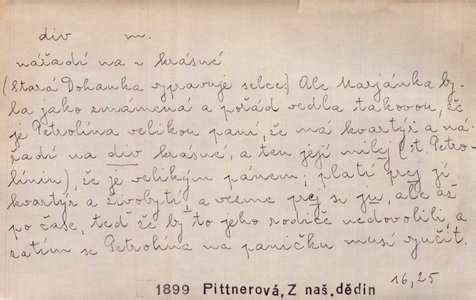 div m.
nářadí na ~ krásné
(Stará Dohanka vypravuje selce:) Ale Marjánka by-
la jako zmámená a pořád vedla takovou, že
je Petrolína velikou paní, že má kvartýr a ná-
řadí na div krásné, a ten její milej (:t. Petro-
línin:), že je velikým pánem; platí prej jí
kvartýr a živobytí a vezme prej si ju, ale až
po čase, teď že by to jeho rodiče nedovolili a
zatím se Petrolína na paničku musí vyučit.
16,25
1899 Pittnerová, Z naš. dědin